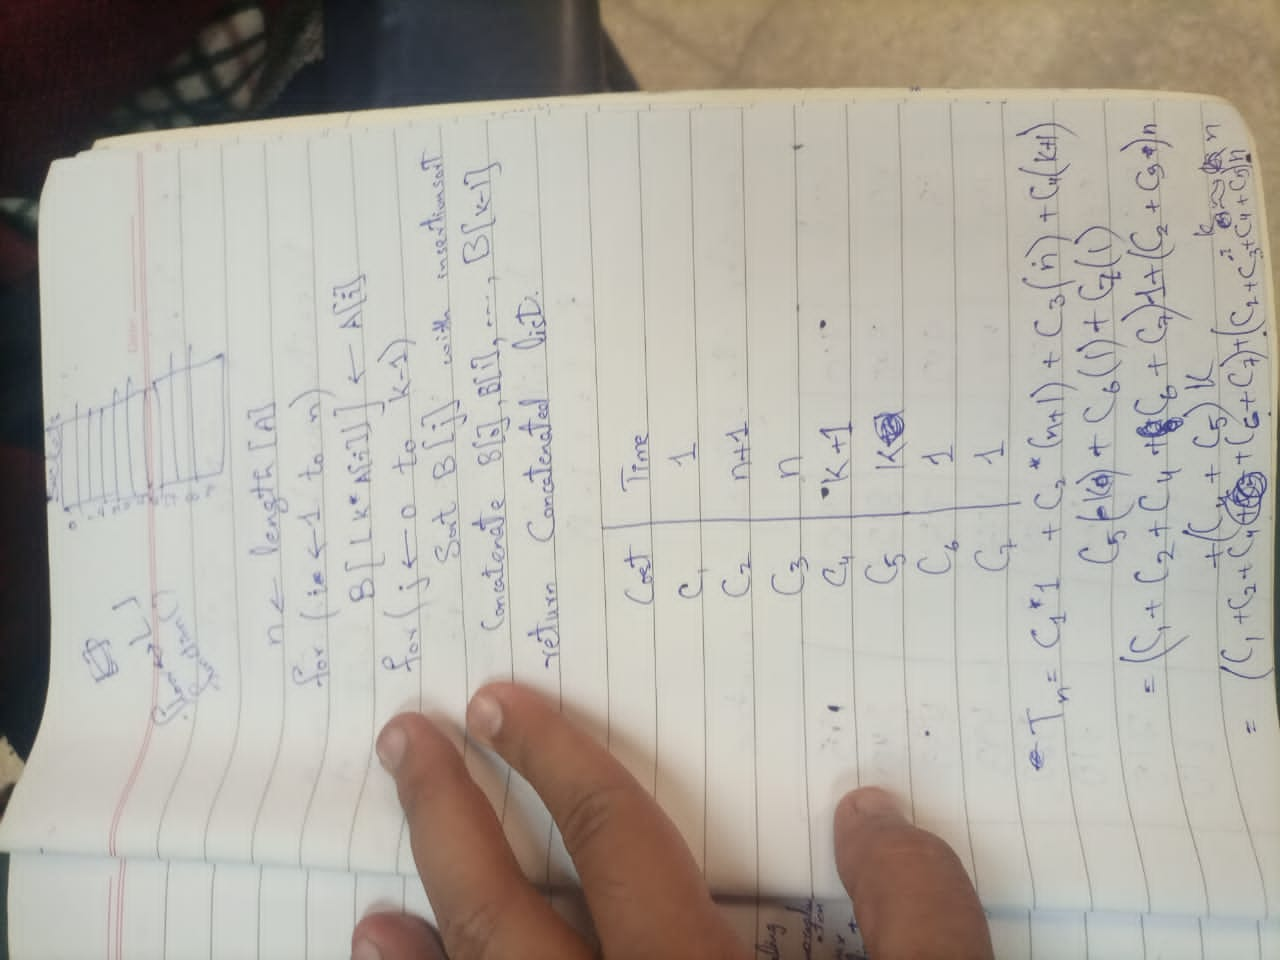 n ← length [A]
for (i ← 1 to n)
B[⌊k*A[i]⌋] ← A[i]
for (j ← 0 to k-1)
Sort B[j] with insertionsort
Concatenate B[0], B[1], ..., B[k-1]
return Concatenated list.
Cost Time
C1 1
C2 n+1
C3 n
C4 K+1
C5 K
C6 1
C7 1
Tn = C1*1 + C2*(n+1) + C3(n) + C4(k+1)
C5(k) + C6(1) + C7(1)
= (C1 + C2 + C4 + C6 + C7)1 + (C2 + C3)n
+ (C4 + C5)K
= (C1 + C2 + C4 + C6 + C7) + (C2 + C3 + C4 + C5)n